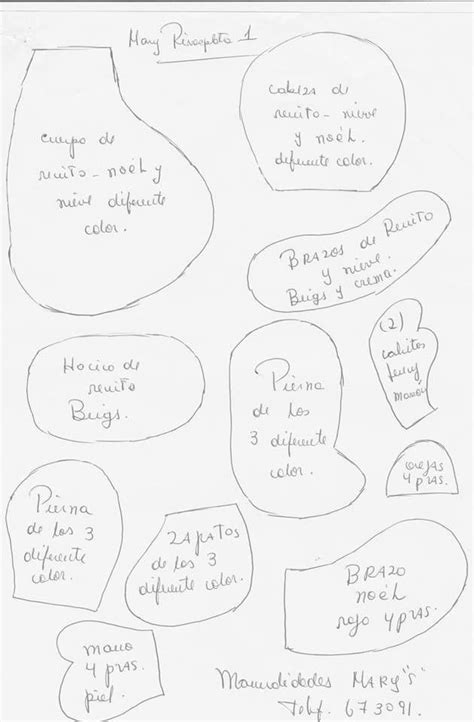 Mary 1
cuerpo de
renito - noél y
nieve diferente
color.
cabeza de
renito - nieve
y noél.
diferente color.
BRAZOS de Renito
y nieve.
Beigs y crema.
Hocico de
renito
Beigs.
Pierna
de los
3 diferente
color.
(2)
marrón
orejas
4 pzas.
Pierna
de los 3
diferente
color.
ZAPATOS
de los 3
diferente
color.
BRAZO
noél
rojo 4 pzas.
mano
4 pzas.
piel.
Manualidades MARY"S"
Telef. 673091.